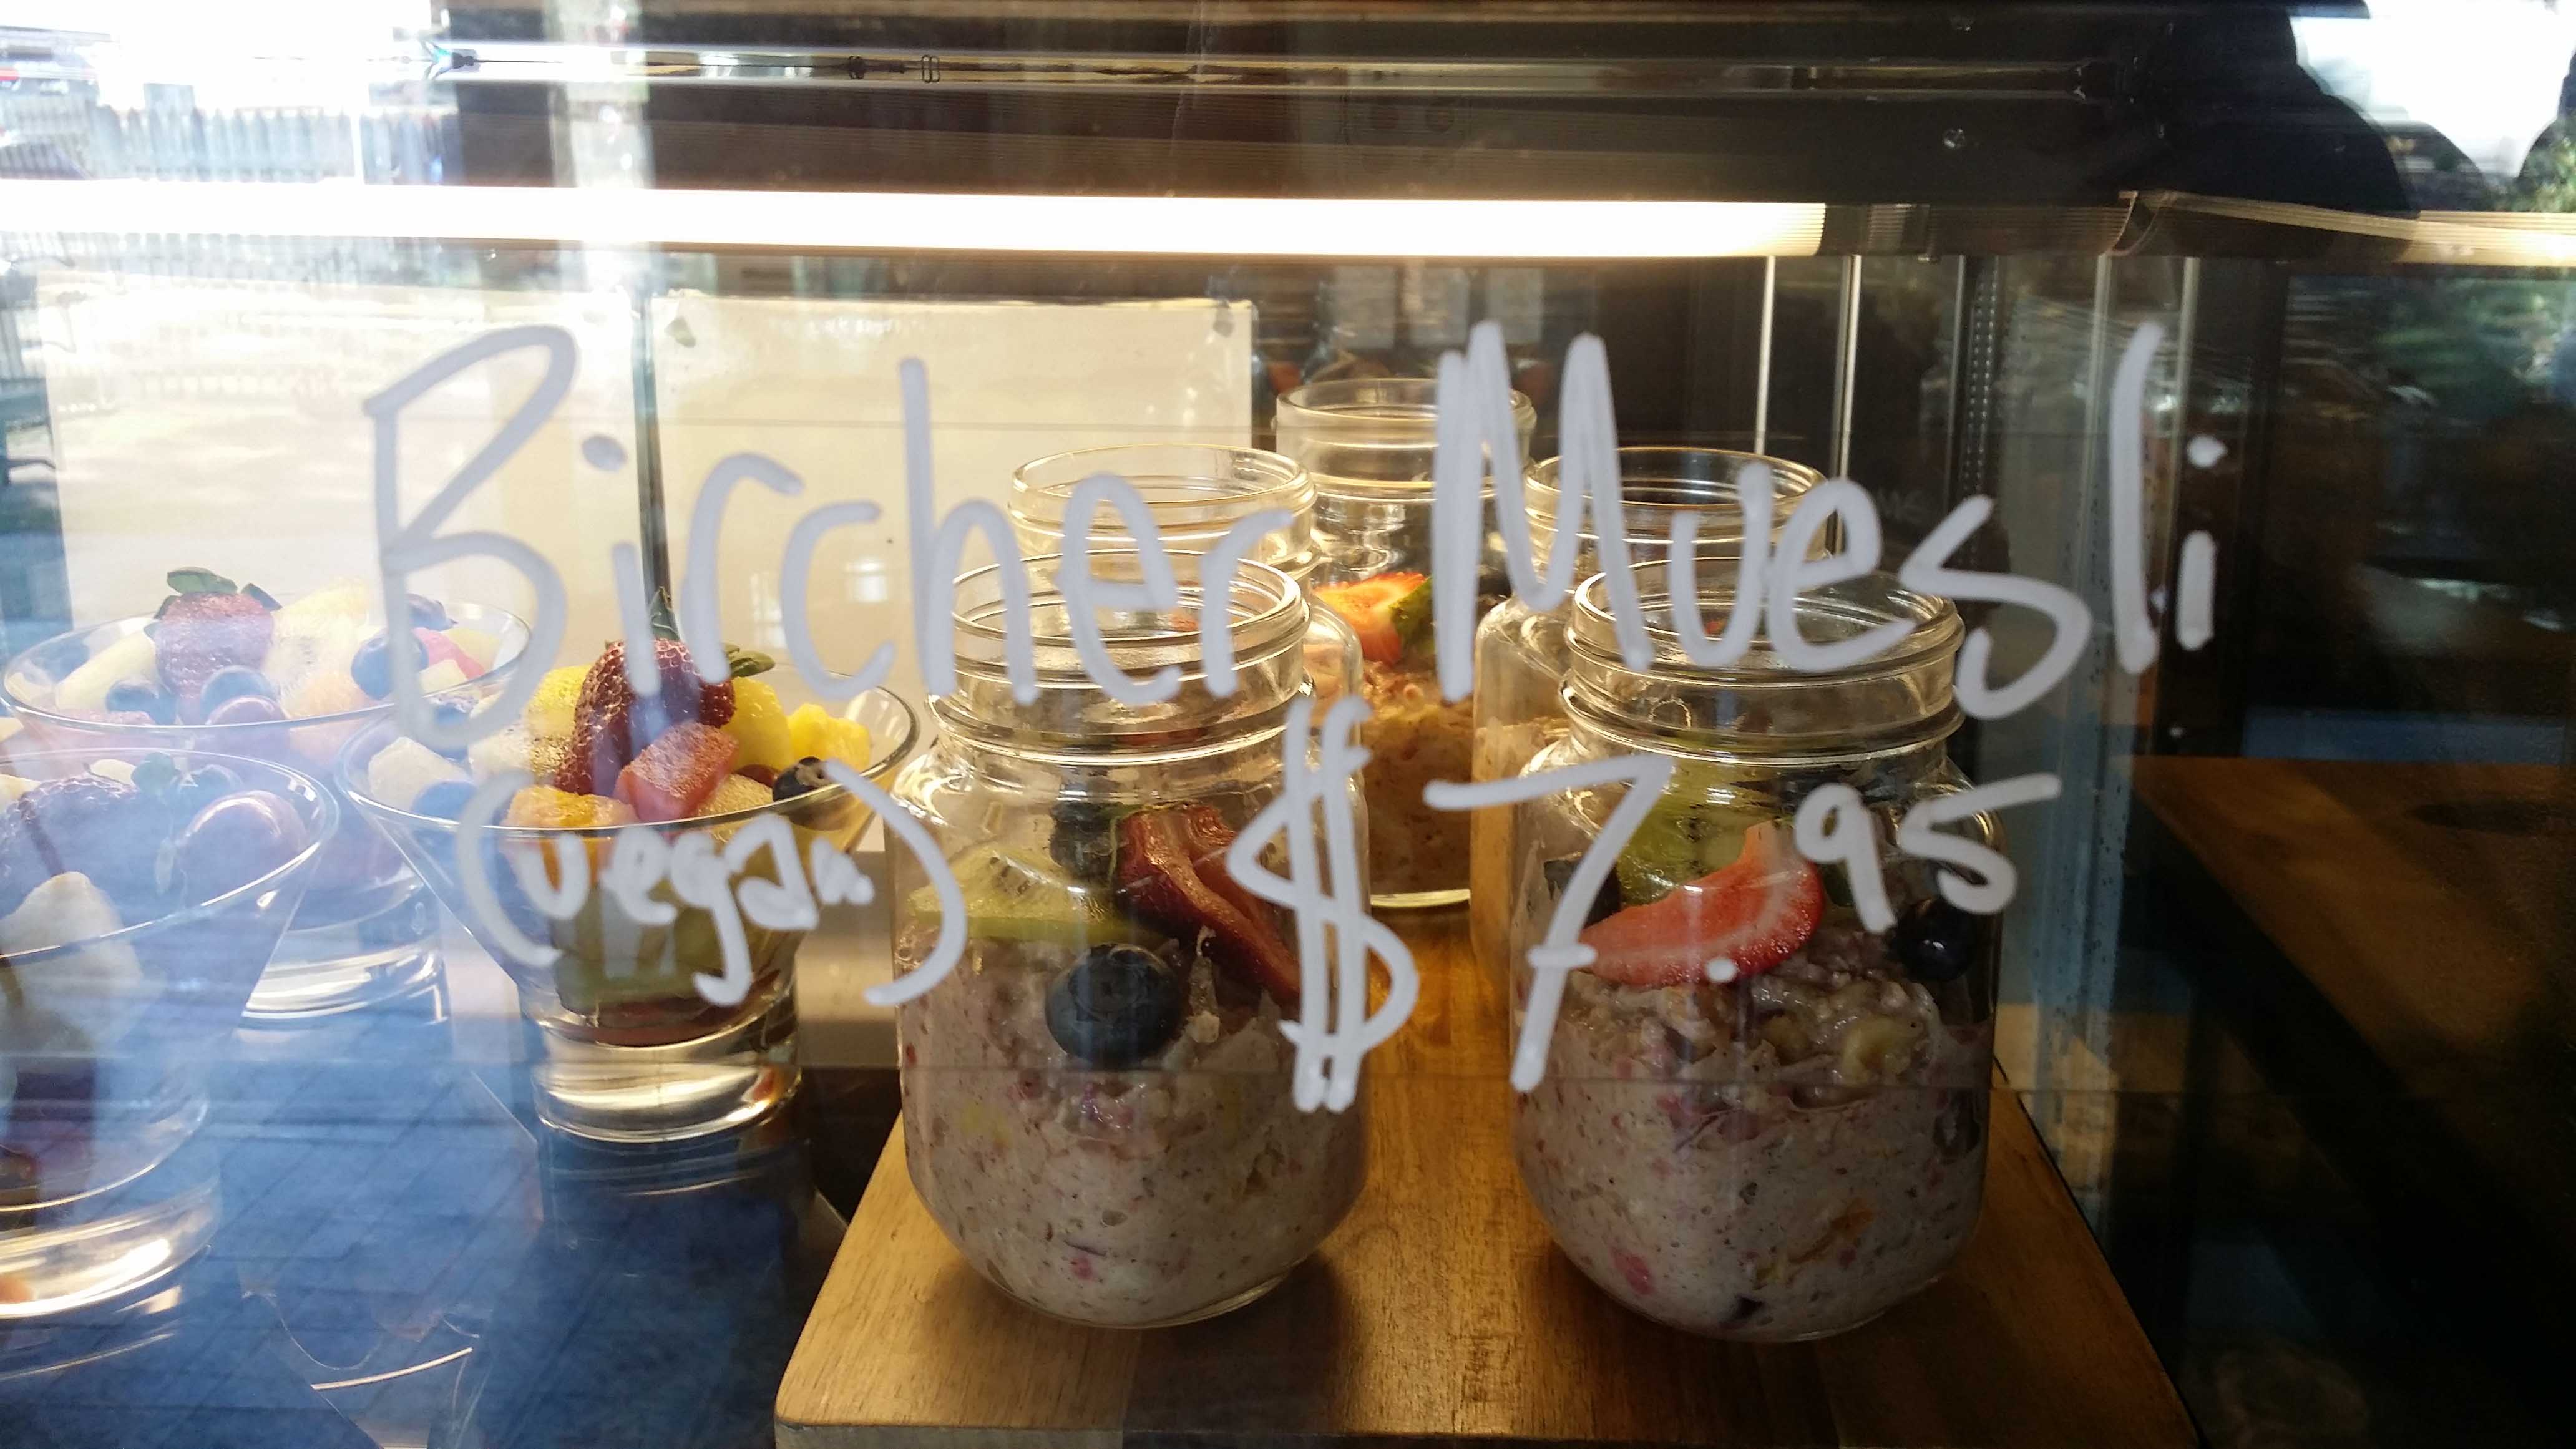 Bircher Muesli
(vegan) $7.95